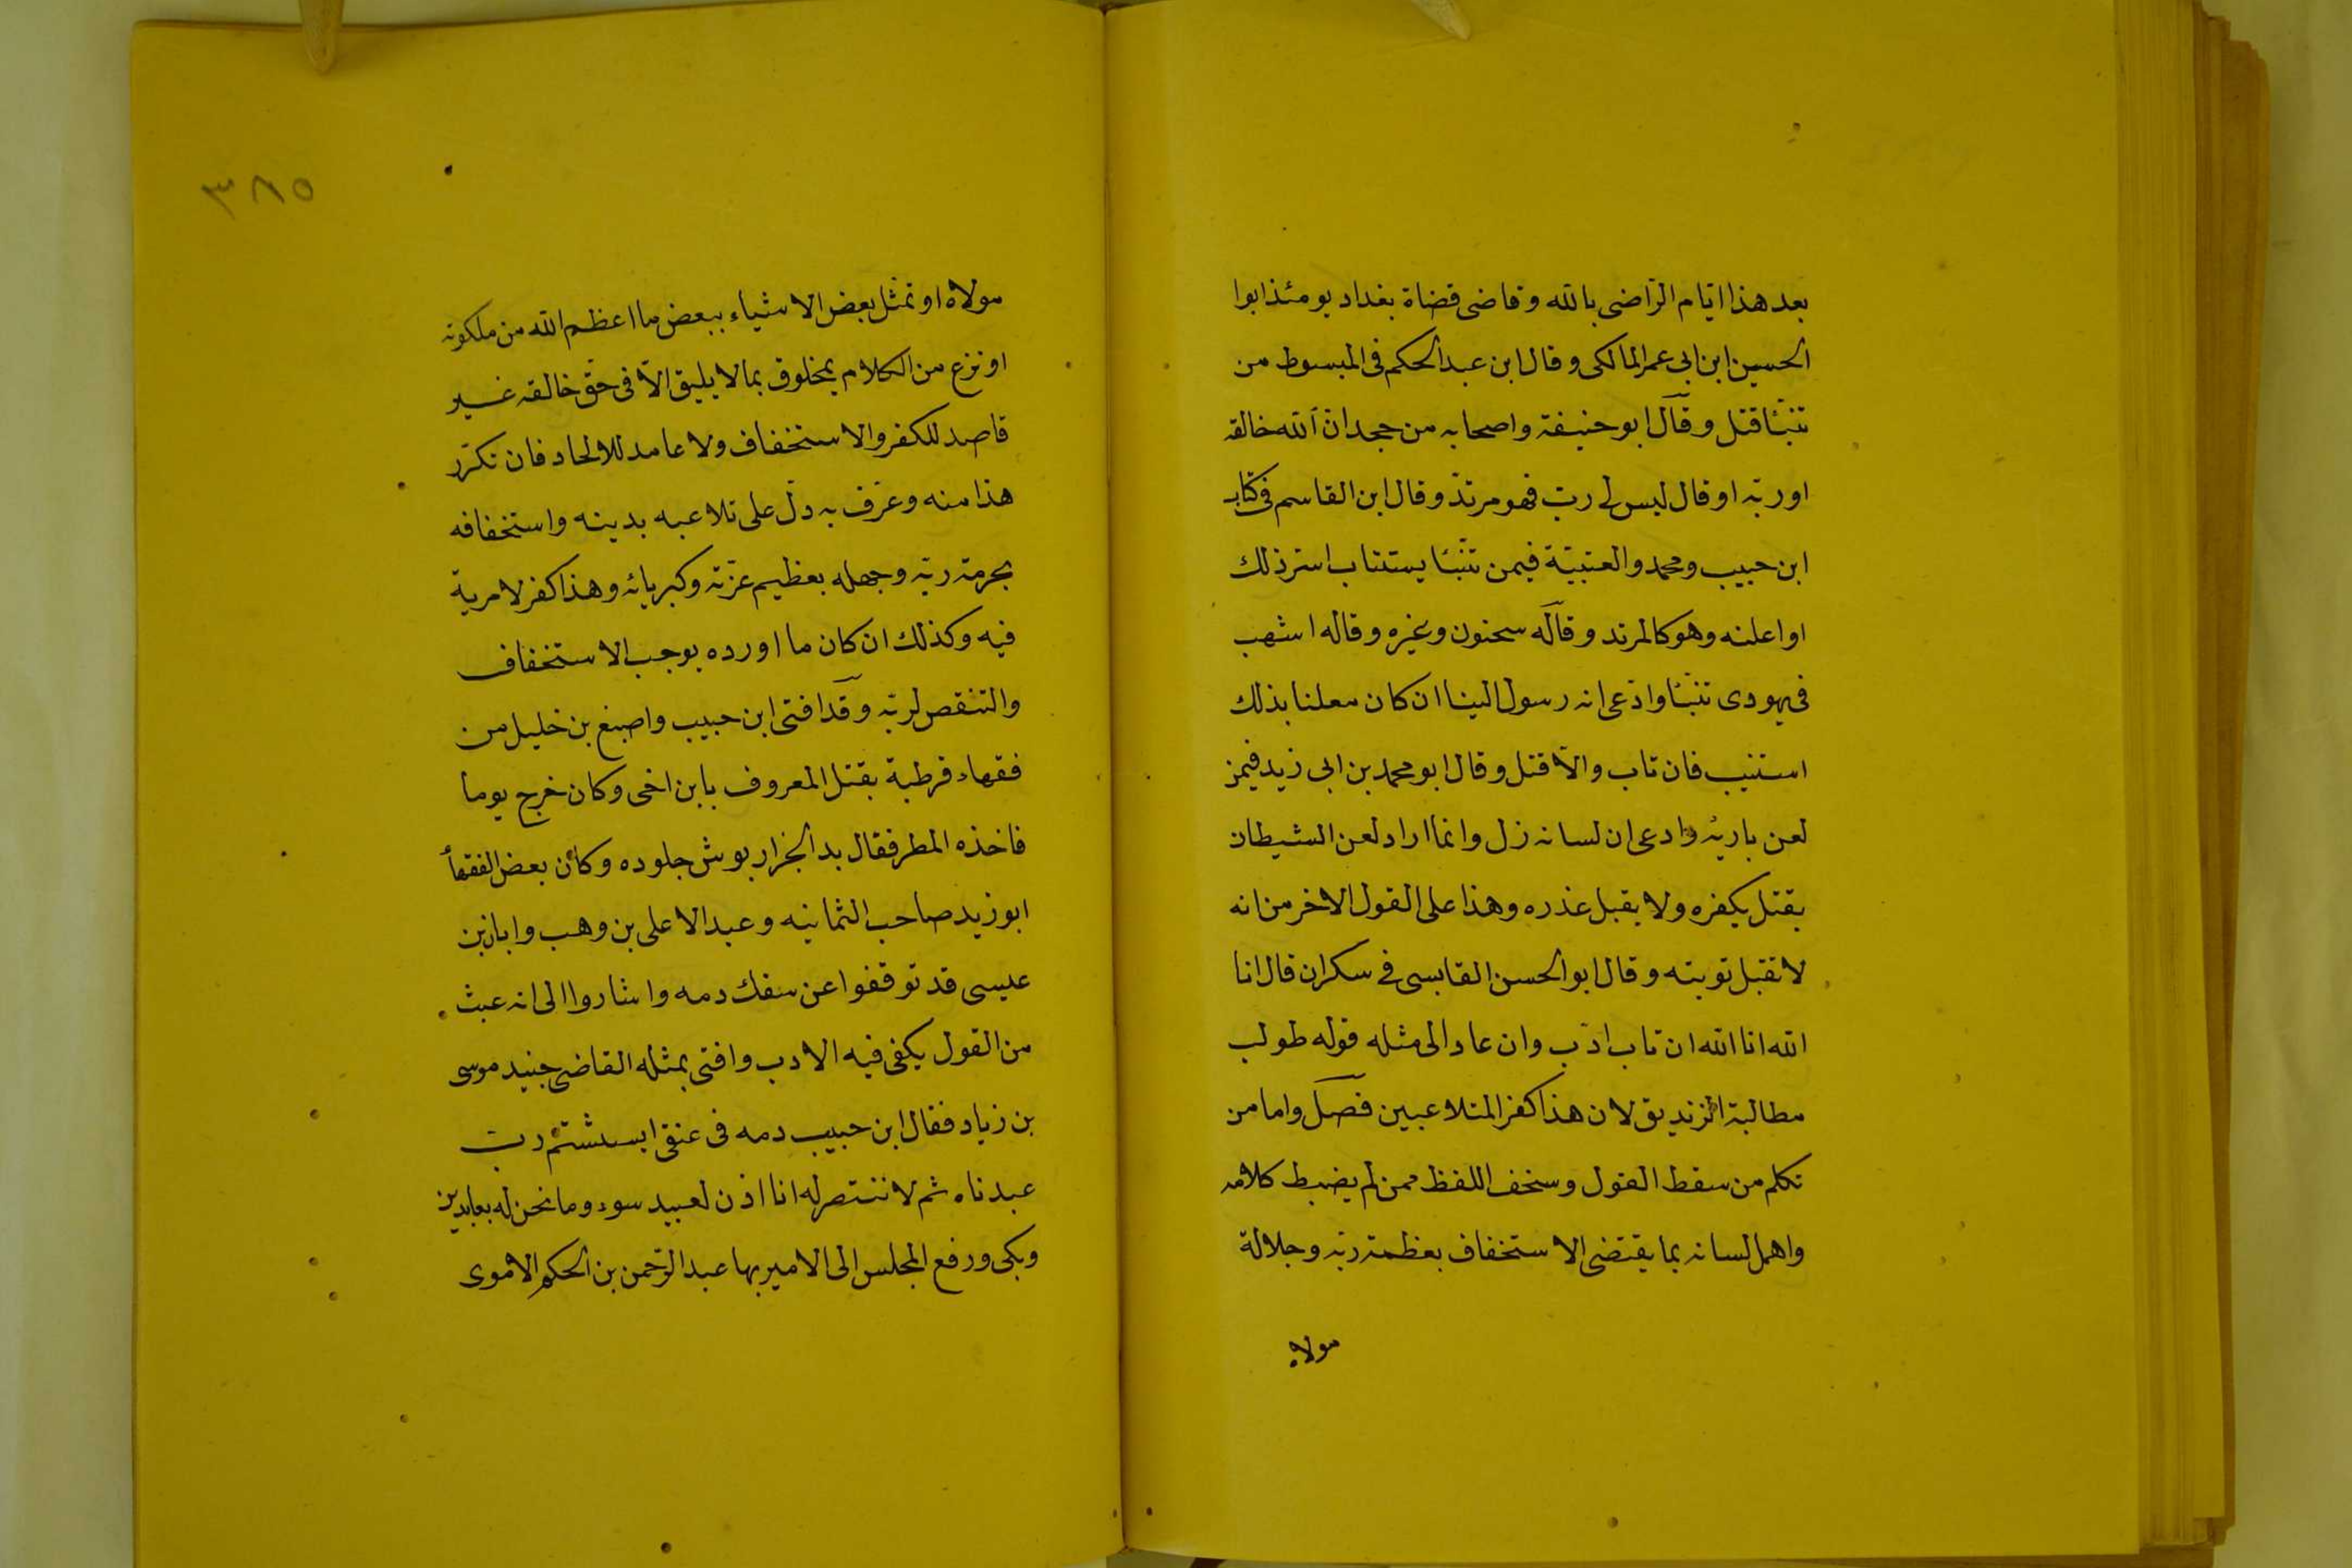 بعد هذا ايّام الرّاضى بالله وقاضى قضاة بغداد يومئذ ابوا
الحسين ابن ابى عمر المالكى وقال ابن عبد الحكم فى المبسوط من
تنبّئا قتل وقال ابو حنيفة واصحابه من جحد انّ الله خالقه
او ربّه او قال ليس لى ربّ فهو مرتدّ وقال ابن القاسم فى كتاب
ابن حبيب ومحمد والعتبيّة فيمن تنبّئا يستتاب اسر ذلك
او اعلنه وهو كالمرتد وقاله سحنون وغيره وقاله اشهب
فى يهودى تنبّئا وادّعى انه رسول الينا ان كان معلنا بذلك
استتيب فان تاب والّا قتل وقال ابو محمد بن ابى زيد فيمن
لعن باريه وادعى ان لسانه زل وانما اراد لعن الشيطان
يقتل بكفره ولا يقبل عذره وهذا على القول الاخر من انه
لا تقبل توبته وقال ابو الحسن القابسى فى سكران قال انا
الله انا الله ان تاب ادّب وان عاد الى مثله قوله طولب
مطالبة الزنديق لان هذا كفر المتلاعبين فصل واما من
تكلم من سقط القول وسخف اللفظ ممن لم يضبط كلامه
واهمل لسانه بما يقتضى الاستخفاف بعظمة ربّه وجلالة
مولاه
٣٨٥
مولاه او تمثل بعض الاشياء ببعض ما اعظم الله من ملكوته
او نزع من الكلام بمخلوق بما لا يليق الّا فى حقّ خالقه غير
قاصد للكفر والاستخفاف ولا عامد للالحاد فان تكرّر
هذا منه وعرّف به دلّ على تلاعبه بدينه واستخفافه
بحرمة ربّه وجهله بعظيم عزّته وكبريائه وهذا كفر لا مرية
فيه وكذلك ان كان ما اورده يوجب الاستخفاف
والتنقص لربّه وقد افتى ابن حبيب واصبغ بن خليل من
فقهاء قرطبة بقتل المعروف بابن اخى وكان خرج يوما
فاخذه المطر فقال بدا الخرار بوش جلوده وكان بعض الفقهأ
ابو زيد صاحب الثمانيه وعبد الاعلى بن وهب وابان بن
عيسى قد توقفوا عن سفك دمه واشاروا الى انه عبث
من القول يكفى فيه الادب وافتى بمثله القاضى جنيد موسى
بن زياد فقال ابن حبيب دمه فى عنقى ايستشتم ربّ
عبدناه ثم لا ننتصر له انا اذن لعبيد سوء وما نحن له بعابدين
وبكى ورفع المجلس الى الامير بها عبد الرّحمن بن الحكم الاموى